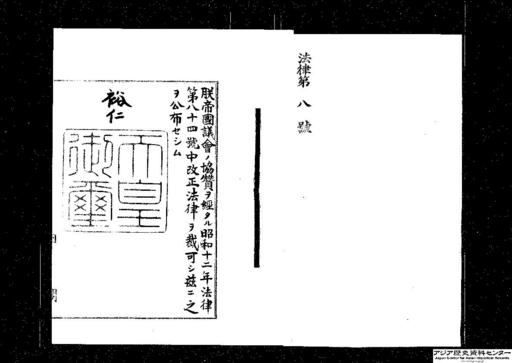 法律第八號
朕帝國議會ノ協贊ヲ經タル昭和十二年法律
第八十四號中改正法律ヲ裁可シ茲ニ之
ヲ公布セシム
裕仁
天皇
御璽
アジア歴史資料センター
Japan Center for Asian Historical Records